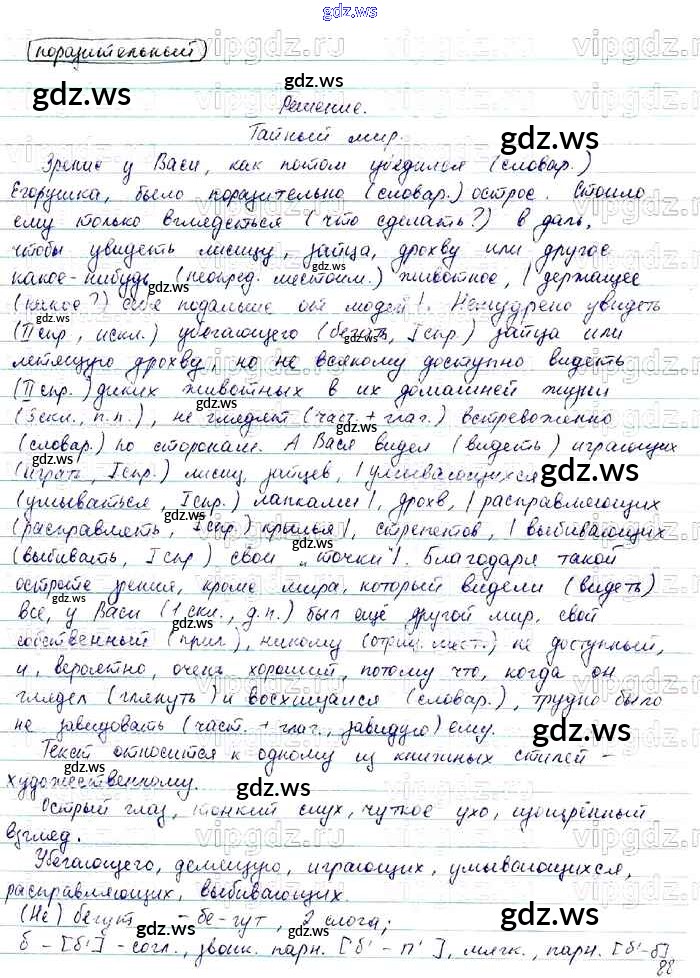 gdz.ws
поразительный
Решение.
Тайный мир.
Зрение у Васи, как потом убедился (словар.)
Егорушка, было поразительно (словар.) острое. Стоило
ему только вглядеться (что сделать?) в даль,
чтобы увидеть лисицу, зайца, дрохву или другое
какое-нибудь (неопред. местоим.) животное, | держащее
(какое?) себя подальше от людей |. Немудрено увидеть
(II спр., искл.) убегающего (бегать, I спр.) зайца или
летящую дрохву, но не всякому доступно видеть
(II спр.) диких животных в их домашней жизни
(3 скл., п.п.), не глядят (част. + глаг.) встревоженно
(словар.) по сторонам. А Вася видел (видеть) играющих
(играть, I спр.) лисиц, зайцев, | умывающихся
(умываться, I спр.) лапками |, дрохв, | расправляющих
(расправлять, I спр.) крылья |, стрепетов, | выбивающих
(выбивать, I спр) свои "точки" |. Благодаря такой
остроте зрения, кроме мира, который видели (видеть)
все, у Васи (1 скл., д.п.) был ещё другой мир, свой
собственный (прил.), никому (отриц. мест.) не доступный,
и, вероятно, очень хороший, потому что, когда он
глядел (глянуть) и восхищался (словар.), трудно было
не завидовать (част. + глаг., завидую) ему.
Текст относится к одному из книжных стилей –
художественному.
Острый глаз, тонкий слух, чуткое ухо, изощрённый
взгляд.
Убегающего, летящую, играющих, умывающихся,
расправляющих, выбивающих.
(Не) бегут – бе-гут, 2 слога;
б – [б'] – согл., звонк. парн. [б' – п'], мягк., парн. [б' – б]
88